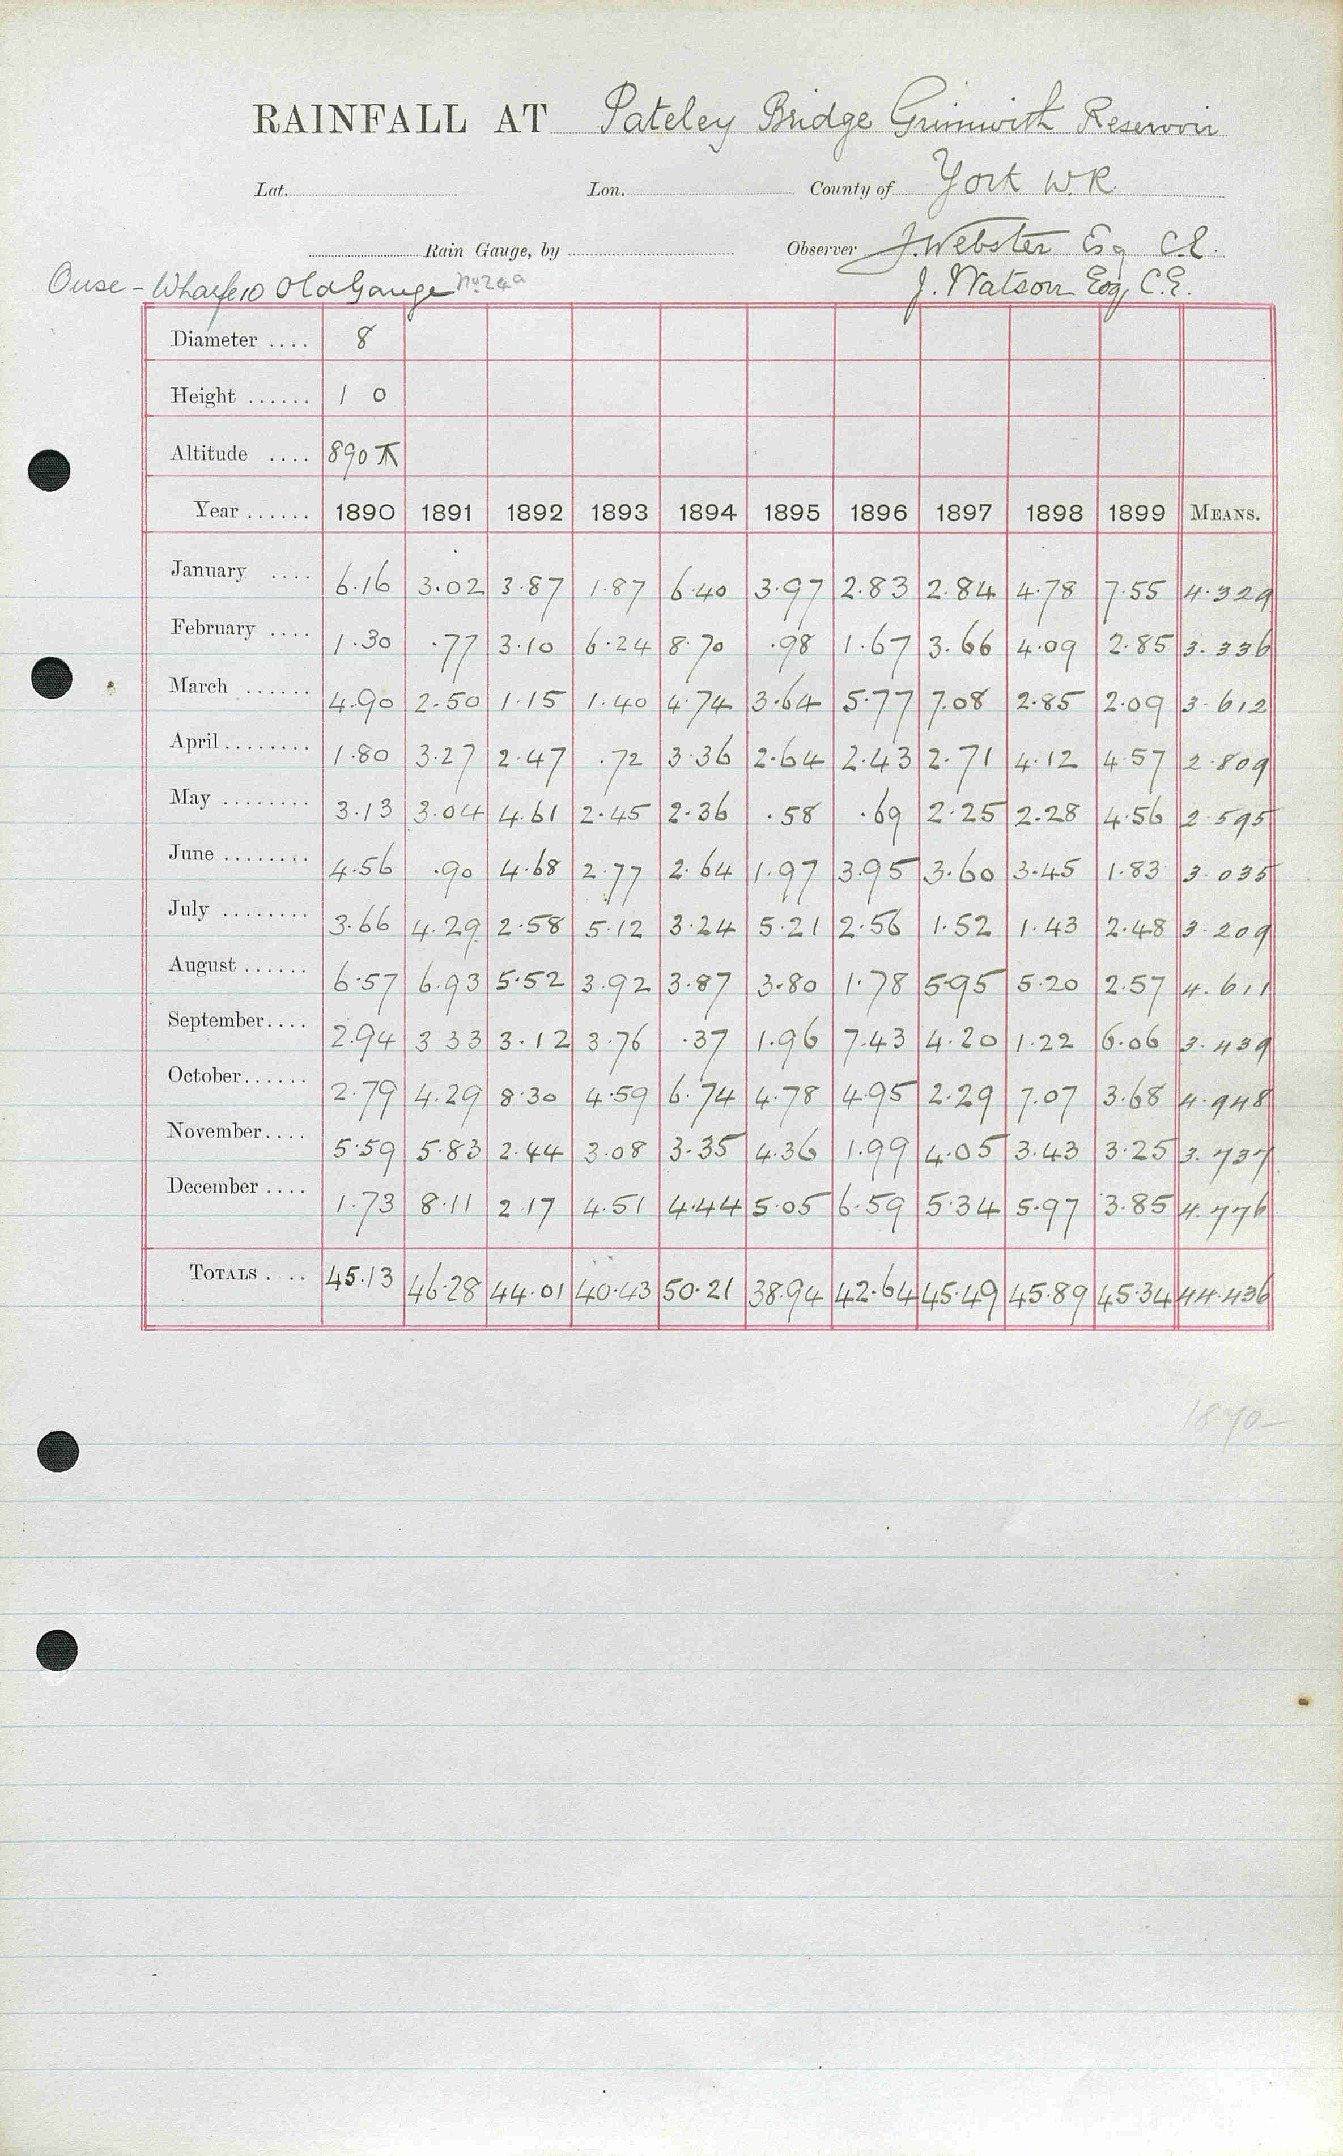 RAINFALL AT Pateley Bridge Grimwith Reservoir
Lat. Lon. County of York W.R.
Rain Gauge, by Observer J. Webster Esq C.E.
Ouse - Wharfe 10 Old Gauge No 24a J. Watson Esq, C.E.
Diameter .... 8
Height ...... 1 0
Altitude .... 890 T
Year ...... 1890 1891 1892 1893 1894 1895 1896 1897 1898 1899 MEANS.
January .... 6.16 3.02 3.87 1.87 6.40 3.97 2.83 2.84 4.78 7.55 4.329
February .... 1.30 .77 3.10 6.24 8.70 .98 1.67 3.66 4.09 2.85 3.336
March ...... 4.90 2.50 1.15 1.40 4.74 3.64 5.77 7.08 2.85 2.09 3.612
April ........ 1.80 3.27 2.47 .72 3.36 2.64 2.43 2.71 4.12 4.57 2.809
May ........ 3.13 3.04 4.61 2.45 2.36 .58 .69 2.25 2.28 4.56 2.595
June ........ 4.56 .90 4.68 2.77 2.64 1.97 3.95 3.60 3.45 1.83 3.035
July ........ 3.66 4.29 2.58 5.12 3.24 5.21 2.56 1.52 1.43 2.48 3.209
August ...... 6.57 6.93 5.52 3.92 3.87 3.80 1.78 5.95 5.20 2.57 4.611
September .... 2.94 3.33 3.12 3.76 .37 1.96 7.43 4.20 1.22 6.06 3.439
October ...... 2.79 4.29 8.30 4.59 6.74 4.78 4.95 2.29 7.07 3.68 4.948
November .... 5.59 5.83 2.44 3.08 3.35 4.36 1.99 4.05 3.43 3.25 3.737
December .... 1.73 8.11 2.17 4.51 4.44 5.05 6.59 5.34 5.97 3.85 4.776
TOTALS . .. 45.13 46.28 44.01 40.43 50.21 38.94 42.64 45.49 45.89 45.34 44.436
1870-